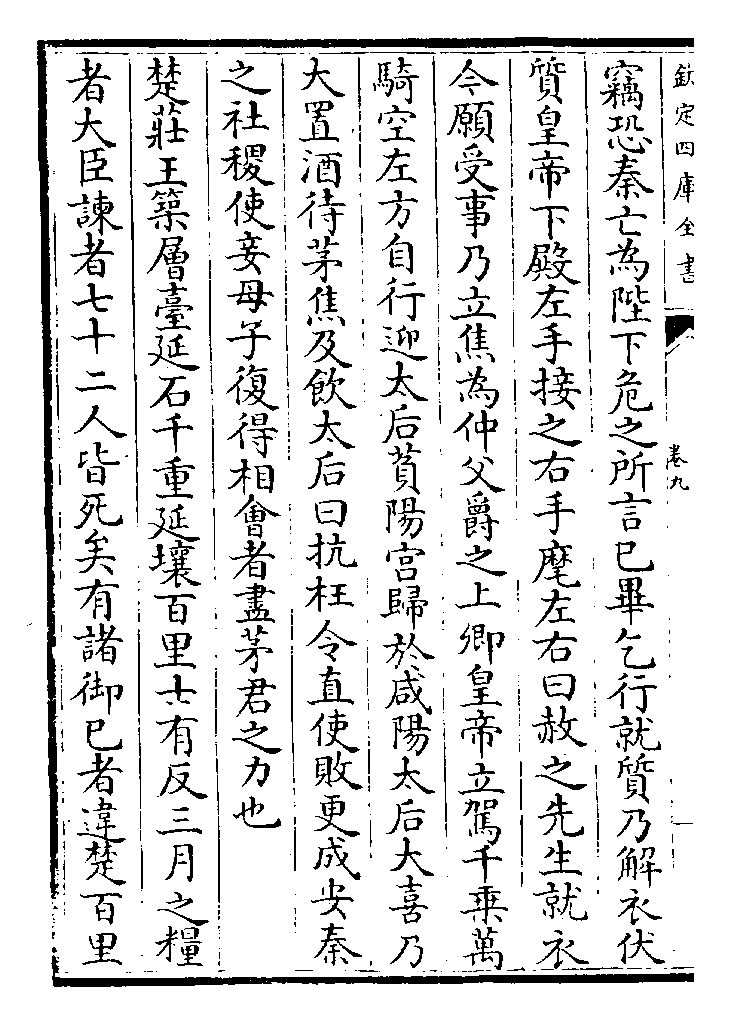 欽定四庫全書
卷九
竊恐秦亡為陛下危之所言已畢乞行就質乃解衣伏
質皇帝下殿左手接之右手麾左右曰赦之先生就衣
今願受事乃立焦為仲父爵之上卿皇帝立駕千乗萬
騎空左方自行迎太后萯陽宫歸於咸陽太后大喜乃
大置酒待茅焦及飲太后曰抗枉令直使敗更成安秦
之社稷使妾母子復得相會者盡茅君之力也
楚莊王築層臺延石千重延壤百里士有反三月之糧
者大臣諫者七十二人皆死矣有諸御已者違楚百里